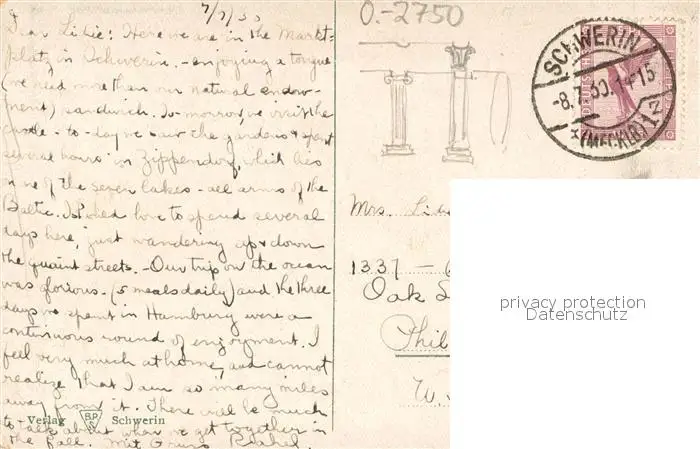 7/7/30
Dear Lidie: Here we are in the Markt-
platz in Schwerin, - enjoying a tongue
(we need more than our natural endow-
ment) sandwich. To-morrow, we visit the
castle - to-day we saw the gardens & spent
several hours in Zippendorf, which lies
one of the seven lakes - all arms of the
Baltic. I should love to spend several
days here, just wandering up & down
the quaint streets. - Our trip on the ocean
was glorious. - (5 meals daily) and the three
days we spent in Hamburg were a
continuous round of enjoyment. I
feel very much at home, and cannot
realize that I am so many miles
away from it. There will be much
to-talk about when we get together in
the fall. Mit Gruss Rahel.
Verlag BPS Schwerin
0.-2750
SCHWERIN
-8.7.30.14-15
(MECKLB)
Mrs. Lidi
1337 -
Oak L
Phil
U.
privacy protection
Datenschutz